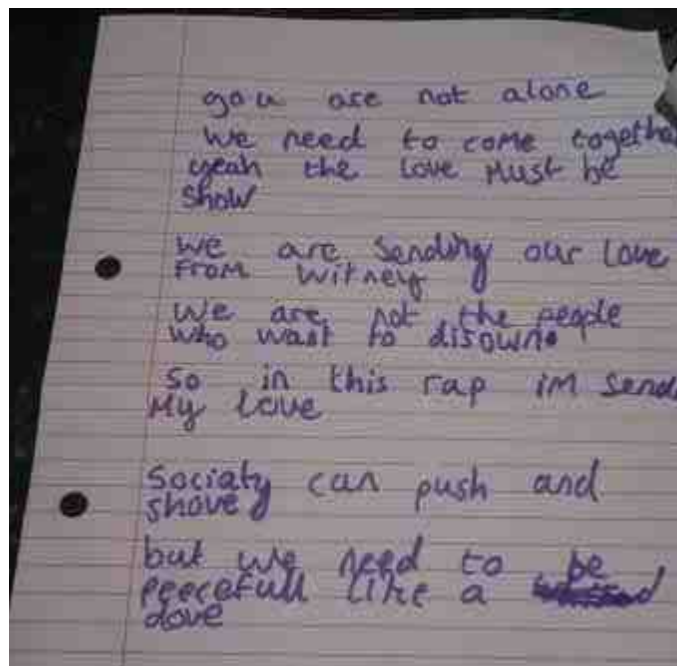 you are not alone
We need to come together
yeah the love must be
show
we are sending our love
from witney
we are not the people
who want to disown
So in this rap im send
My love
Sociaty can push and
shove
but we need to be
peecefull like a
dove